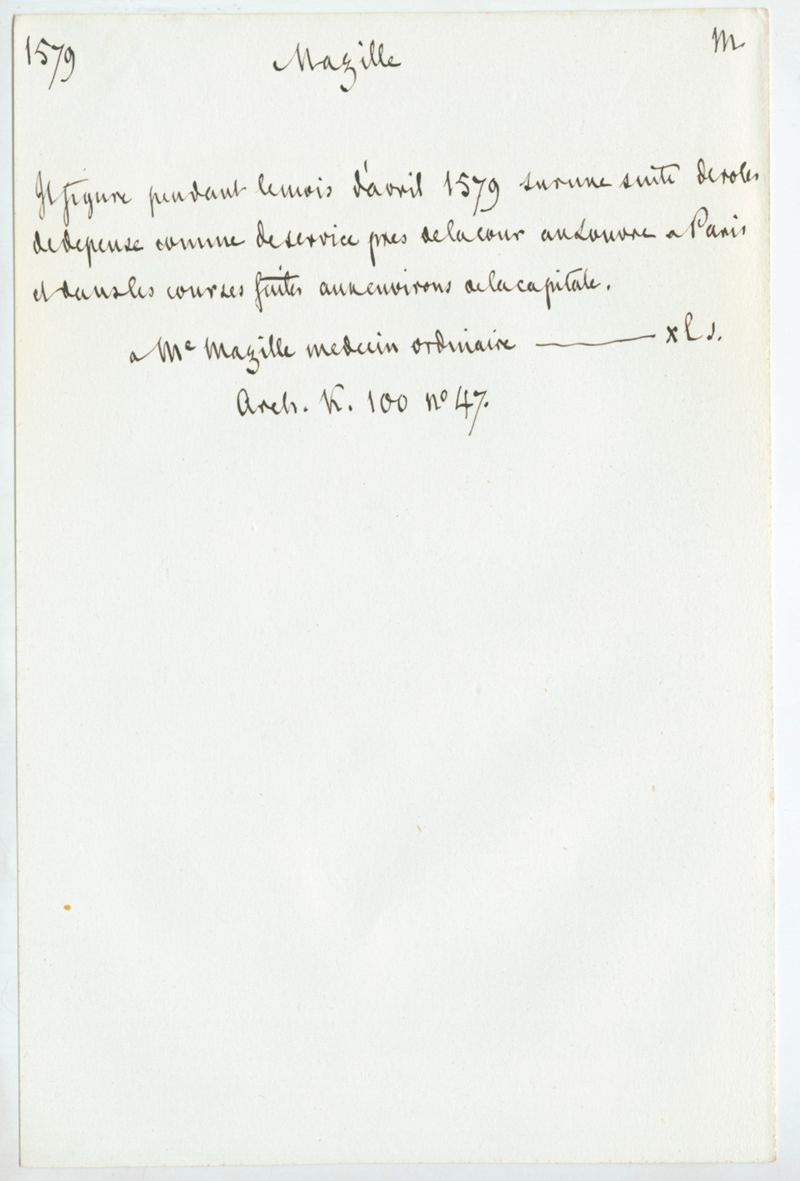 1579 Mazille M
Il figure pendant le mois d'avril 1579 sur une suite de roles
de depense comme de service pres de la cour au Louvre a Paris
et dans les courses faites aux environs de la capitale.
a Me Mazille medecin ordinaire ——— xl s.
Arch. K. 100 no 47.